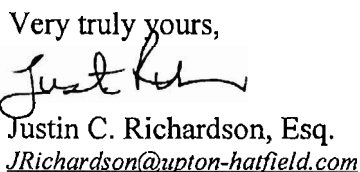 Very truly yours,
Justin C. Richardson, Esq.
JRichardson@upton-hatfield.com